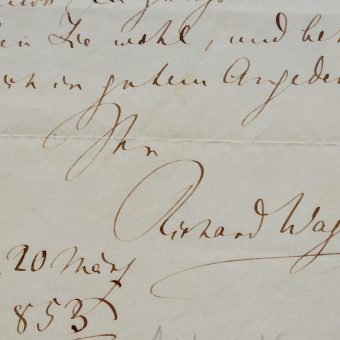 Sie wohl, und beh
in gutem Angeden
Ihr
Richard Wag
20 März
853